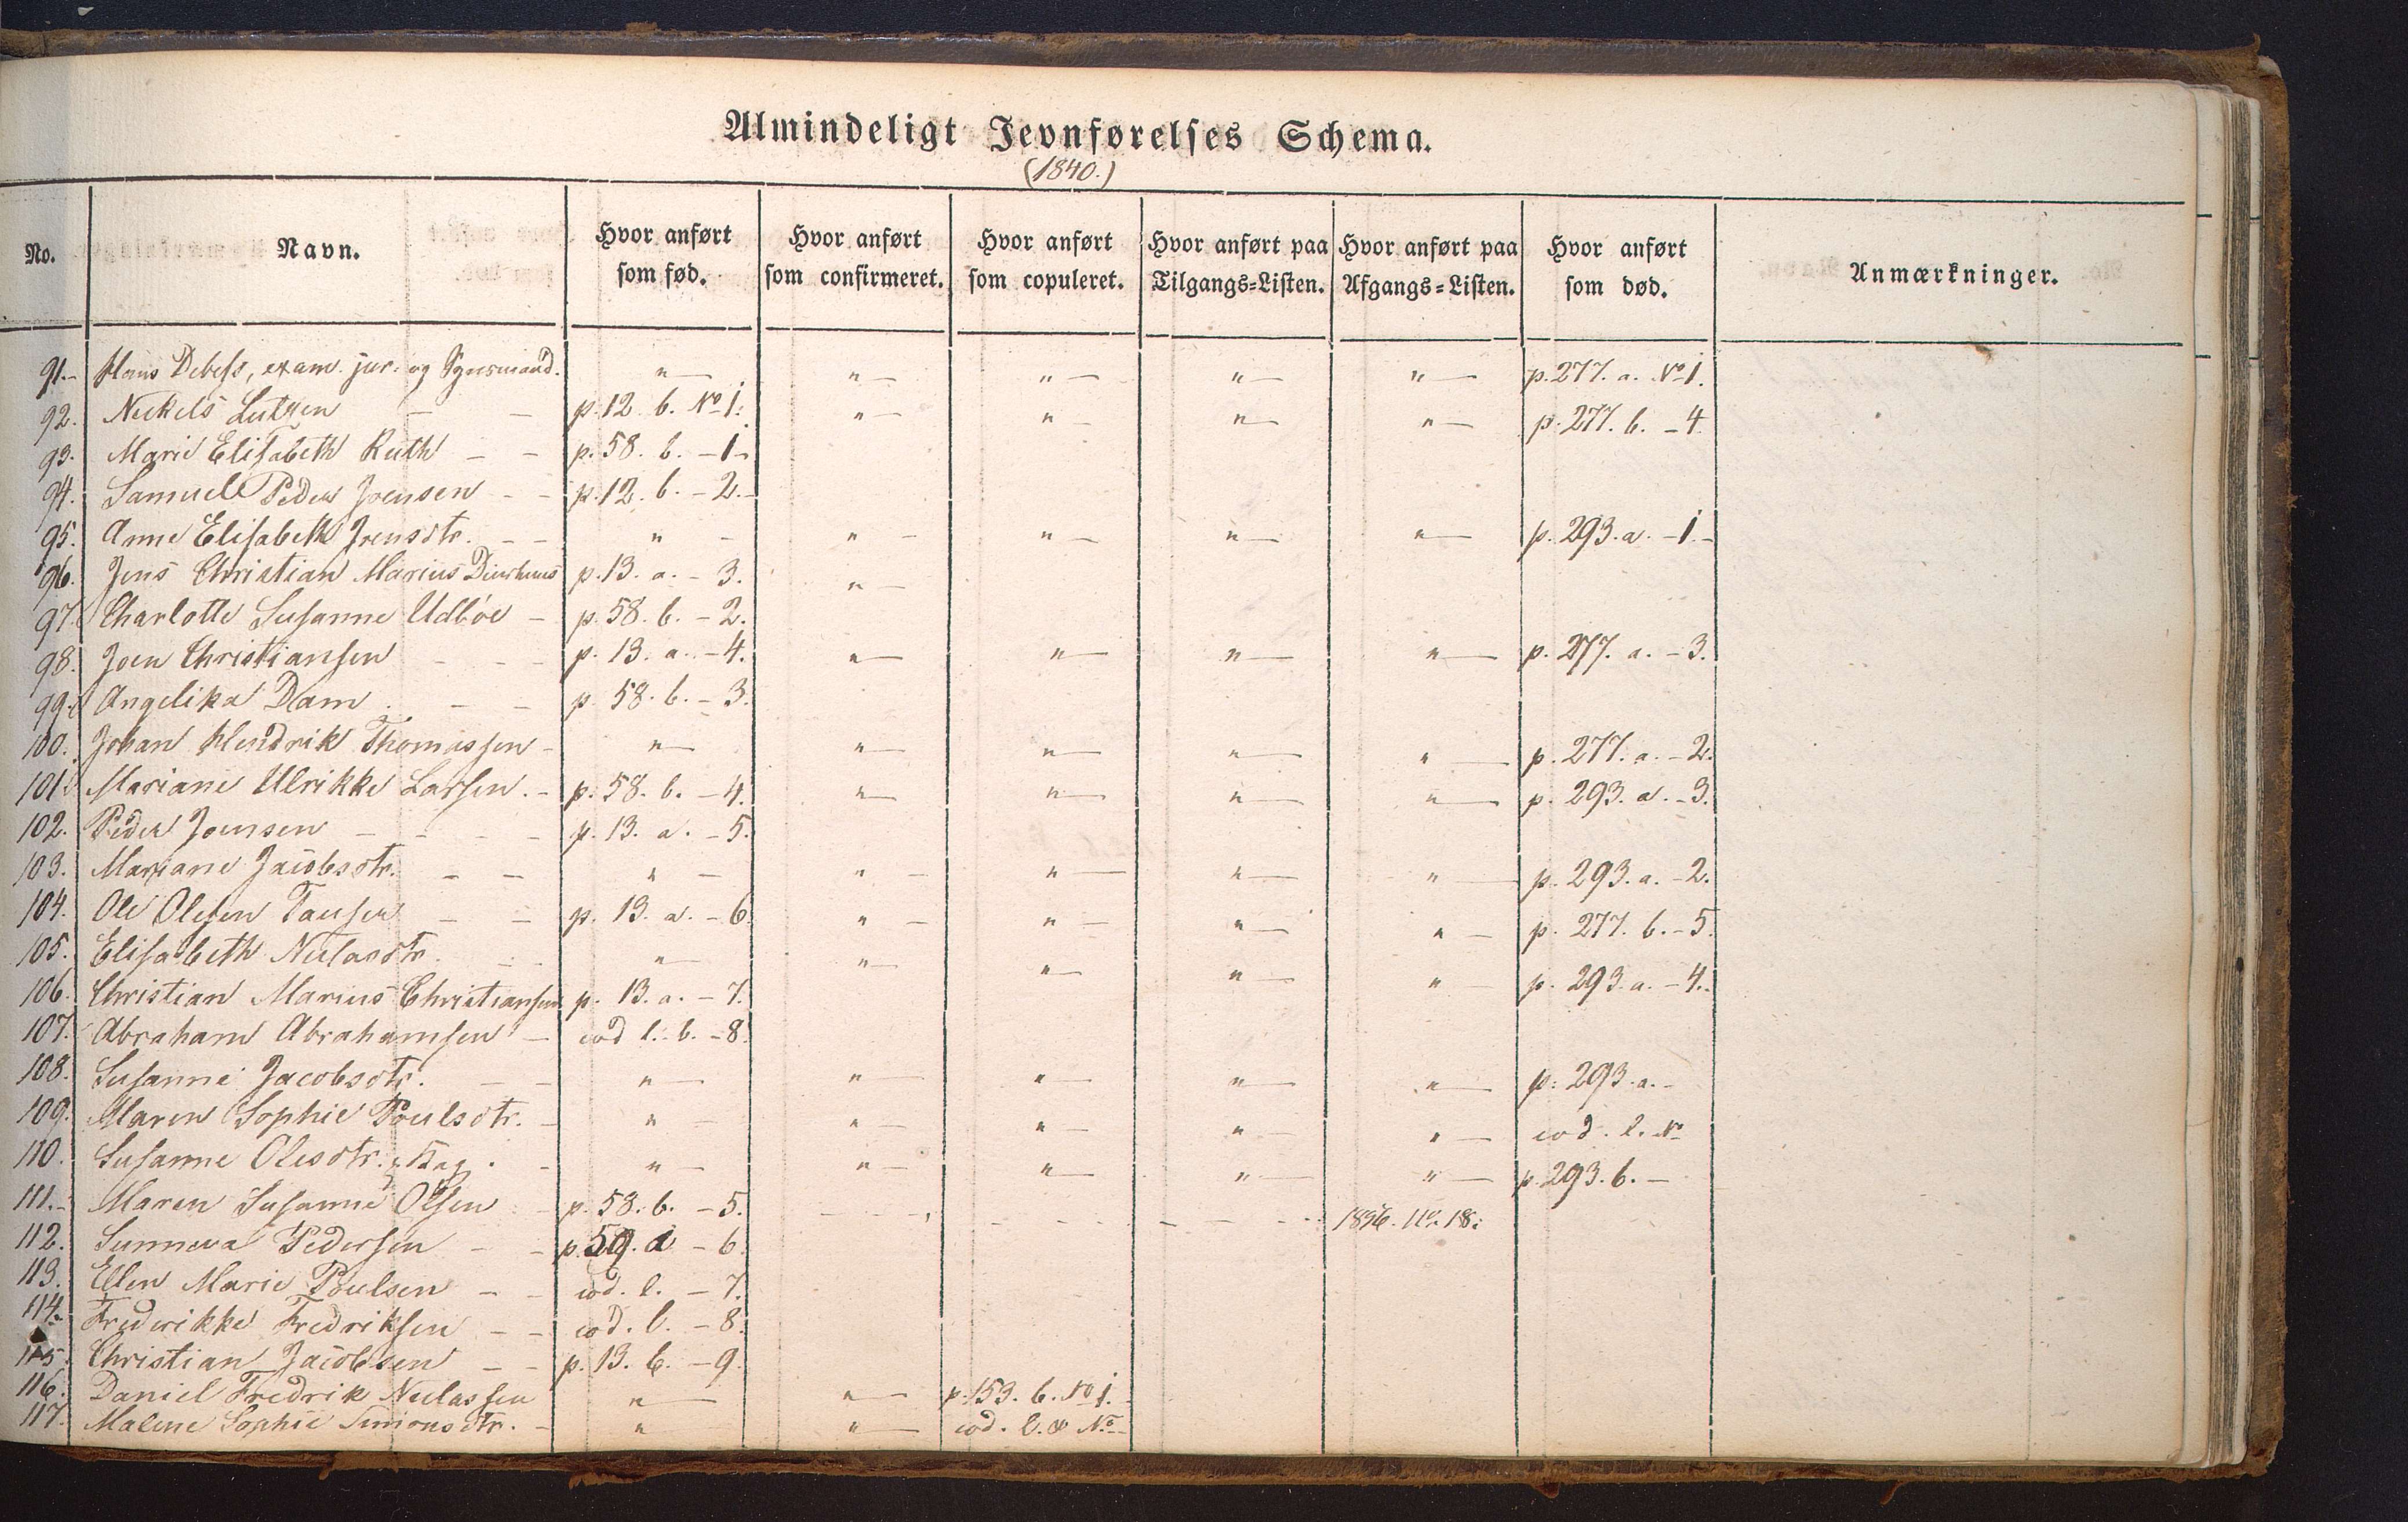 Almindeligt Jevnførelses Schema.
(1840.)
No. Navn. Hvor anført som fød. Hvor anført som confirmeret. Hvor anført som copuleret. Hvor anført paa Tilgangs-Listen. Hvor anført paa Afgangs-Listen. Hvor anført som død. Anmærkninger.
91.- Hans Debess, exam. jur. og Synsmand. " — " — " — " — " — p. 277. a. No 1.
92. Neckels Lutzen — — p. 12. b. No 1. " — " — " — " — p. 277. b. - 4.
93. Marie Elisabeth Ruth — — p. 58. b. - 1 -
94. Samuel Peder Joensen - - p. 12. b. - 2. -
95. Anne Elisabeth Joensdtr. - - " - " - " — " — " — p. 293. a. - 1. -
96. Jens Christian Marius p. 13. a. - 3. " —
97. Charlotte Susanne Udbøe - p. 58. b. - 2.
98. Joen Christiansen - - - p. 13. a. - 4. " — " — " — " — p. 277. a. - 3.
99. Angelika Dam . - - p. 58. b. - 3.
100. Johan Hendrik Thomassen - " — " — " — " — " — p. 277. a. - 2.
101. Mariane Ulrikke Larsen. - p. 58. b. - 4. " — " — " — " — p. 293. a. - 3.
102. Peder Joensen - - - - p. 13. a. - 5.
103. Mariane Jacobsdtr. - - " - " - " — " — " — p. 293. a. - 2.
104. Ole Olesen Tausen - - p. 13. a. - 6. " - " - " — " - p. 277. b. - 5.
105. Elisabeth Niclasdtr. - " — " — " — " — " - p. 293. a. - 4.
106. Christian Marius Christiansen p. 13. a. - 7.
107. Abraham Abrahamsen - eod l. b. - 8.
108. Susanne Jacobsdtr. - - " — " — " — " — " — p. 293. a. -
109. Maren Sophie Poulsdtr. - " - " - " - " — " — eod. l. No
110. Susanne Olesdtr. - " — " — " — " — " — p. 293. b. -
111. - Maren Susanne Olsen - p. 58. b. - 5. - - - - - - - - - - 1856. No. 18.
112. Sunneva Pedersen - - p. 59. a - 6.
113. Ellen Marie Poulsen - - eod. l. - 7.
114. Frederikke Fredriksen - - eod. l. - 8.
115. Christian Jacobsen - - p. 13. b. - 9.
116. Daniel Fredrik Niclassen " — " — p. 153. b. No 1.
117. Malene Sophie Simonsdtr. - " — " — eod. l. & No -